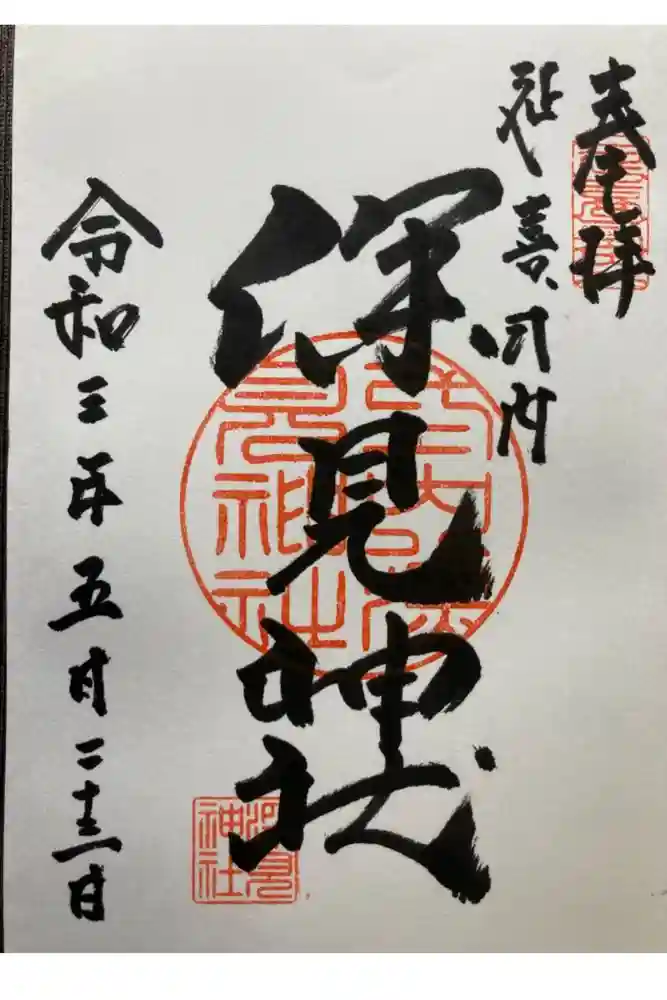 奉拝
延喜式内
深見神社
式内深
見神社
深見
神社
令和三年五月二十三日